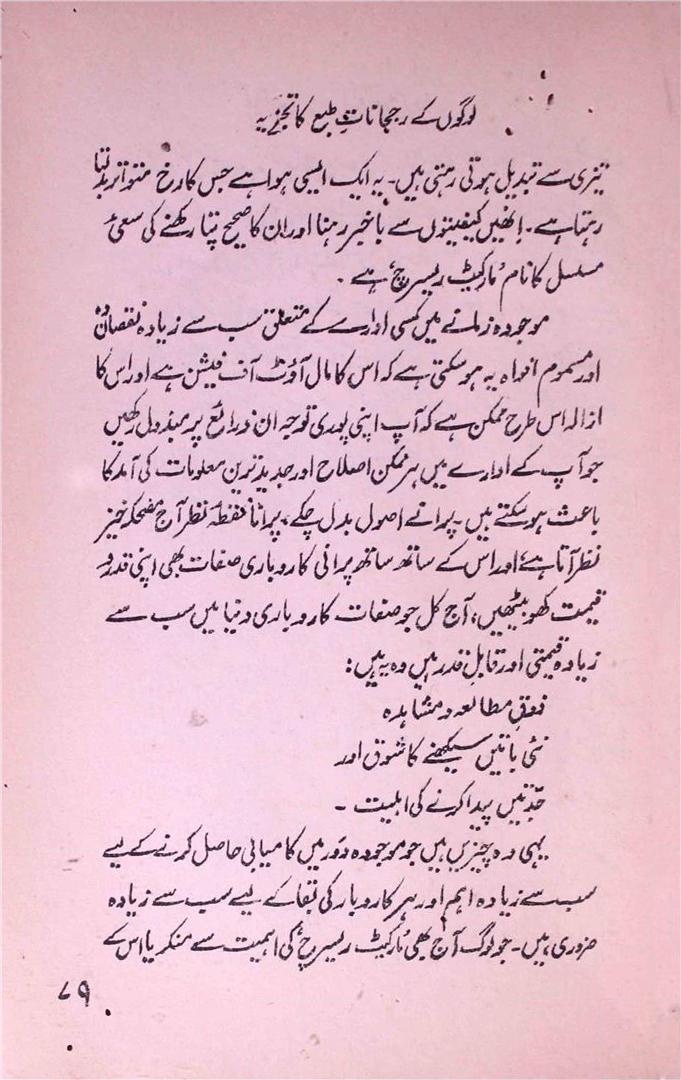 لوگوں کے رجحاناتِ طبع کا تجزیہ
تیزی سے تبدیل ہوتی رہتی ہیں۔ یہ ایک ایسی ہوا ہے جس کا رخ متواتر بدلتا
رہتا ہے۔ اِنھیں کیفیتوں سے باخبر رہنا اور ان کا صحیح پتا رکھنے کی سعیٔ
مسلسل کا نام ’مارکیٹ ریسرچ‘ ہے۔
موجودہ زمانے میں کسی ادارے کے متعلق سب سے زیادہ نقصان دہ
اور مسموم افواہ یہ ہو سکتی ہے کہ اس کا مال آؤٹ آف فیشن ہے اور اس کا
ازالہ اس طرح ممکن ہے کہ آپ اپنی پوری توجہ ان ذرائع پر مبذول رکھیں
جو آپ کے ادارے میں ہر ممکن اصلاح اور جدید ترین معلومات کی آمد کا
باعث ہو سکتے ہیں۔ پرانے اصول بدل چکے، پرانا نقطۂ نظر آج مضحکہ خیز
نظر آتا ہے اور اس کے ساتھ ساتھ پرانی کاروباری صفات بھی اپنی قدر و
قیمت کھو بیٹھیں، آج کل جو صفات کاروباری دنیا میں سب سے
زیادہ قیمتی اور قابلِ قدر ہیں وہ یہ ہیں:
ذوقِ مطالعہ و مشاہدہ
نئی باتیں سیکھنے کا شوق اور
جدّتیں پیدا کرنے کی اہلیت ۔
یہی وہ چیزیں ہیں جو موجودہ دَور میں کامیابی حاصل کرنے کے لیے
سب سے زیادہ اہم اور ہر کاروبار کی بقا کے لیے سب سے زیادہ
ضروری ہیں۔ جو لوگ آج بھی ’مارکیٹ ریسرچ‘ کی اہمیت سے منکر یا اس کے
۷۹